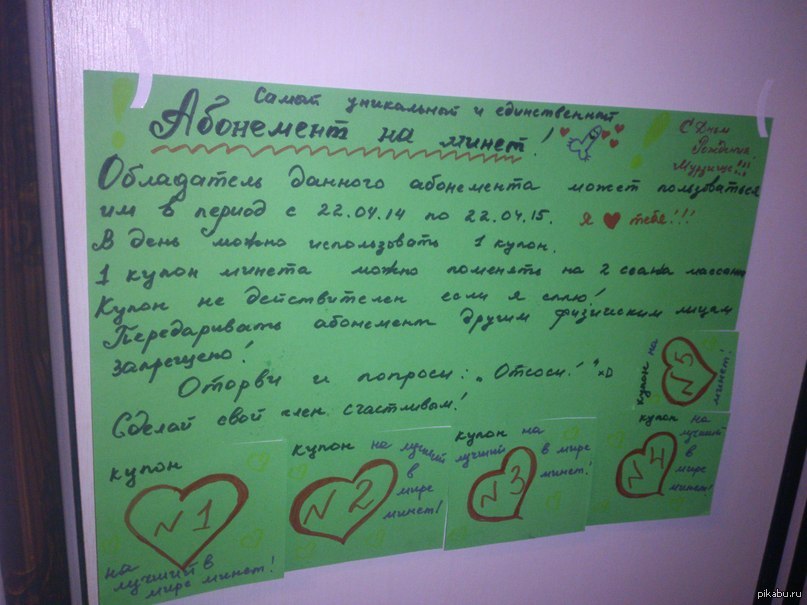 Самый уникальный и единственный
Абонемент на минет!
С Днём
Рождения,
Обладатель данного абонемента может пользоваться
им в период с 22.04.14 по 22.04.15. Я ❤ тебя!!!
В день можно использовать 1 купон.
1 купон минета можно поменять на 2 сеанса массажа
Купон не действителен если я сплю!
Передаривать абонемент другим физическим лицам
запрещено!
Оторви и попроси: „Отсоси!" xD
Сделай свой член счастливым!
купон
№1
на
лучший в
мире минет!
купон на лучший
№2
в
мире
минет!
купон на
лучший в мире
№3
минет!
купон на
лучший
№4
в
мире
минет!
купон на
№5
минет!
pikabu.ru